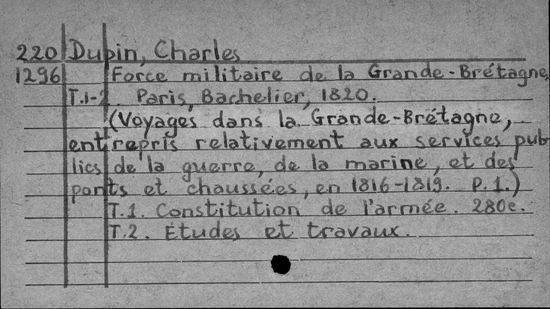 220 Dupin, Charles
1296 Force militaire de la Grande-Brétagne,
T.1-2. Paris, Bachelier, 1820.
(Voyages dans la Grande-Brétagne,
entrepris relativement aux services pub
lics de la guerre, de la marine, et des
ponts et chaussées, en 1816-1819. P.1.)
T.1. Constitution de l'armée. 280e.
T.2. Études et travaux.